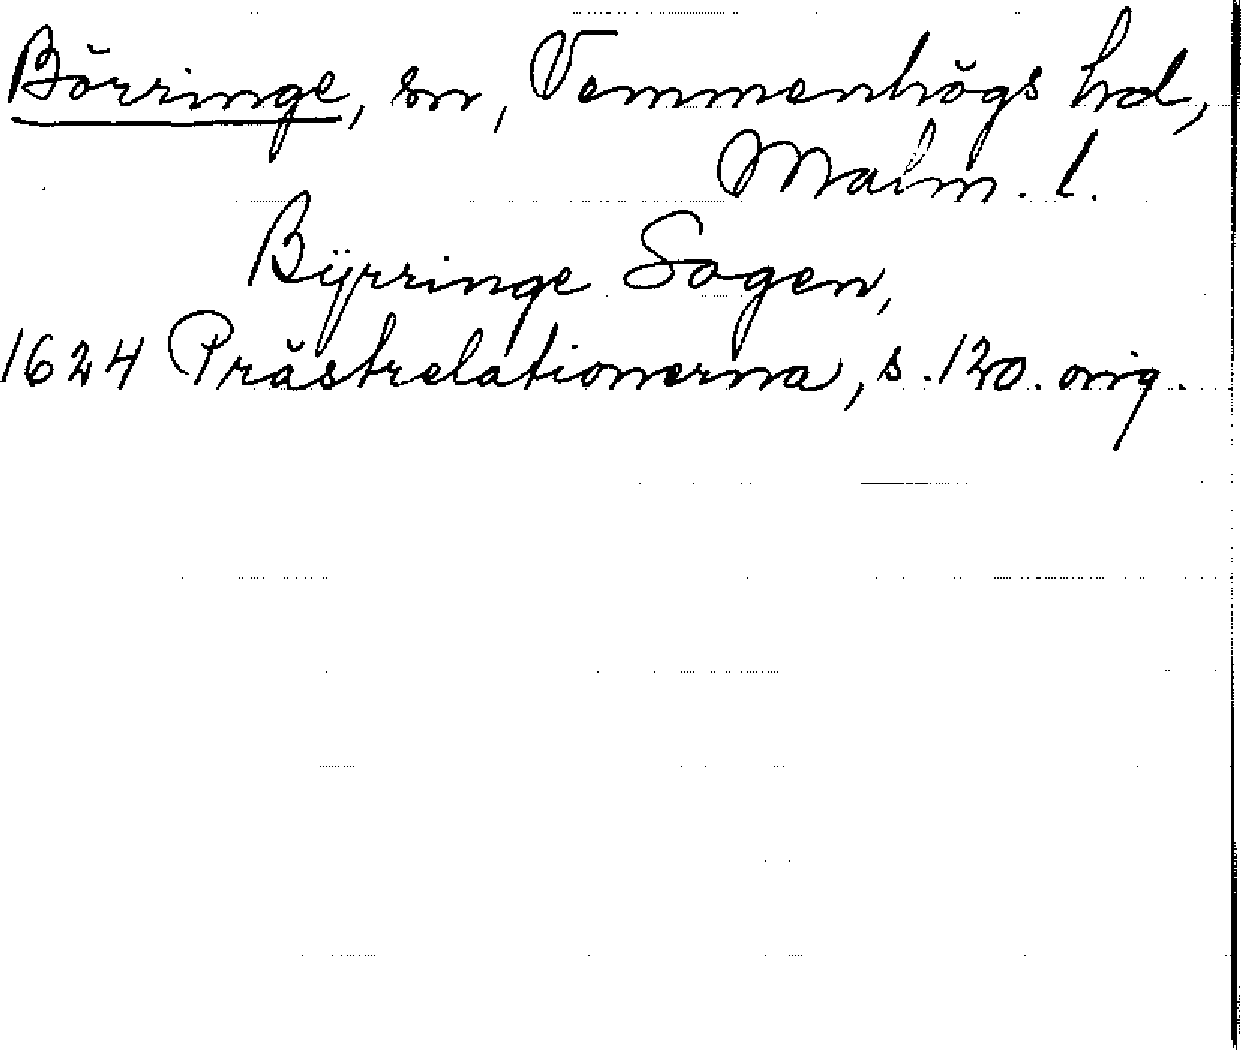 Börringe, sn, Vemmenhögs hd,
Malm. l.
Bÿrringe Sogen,
1624 Prästrelationerna, s. 120. orig.